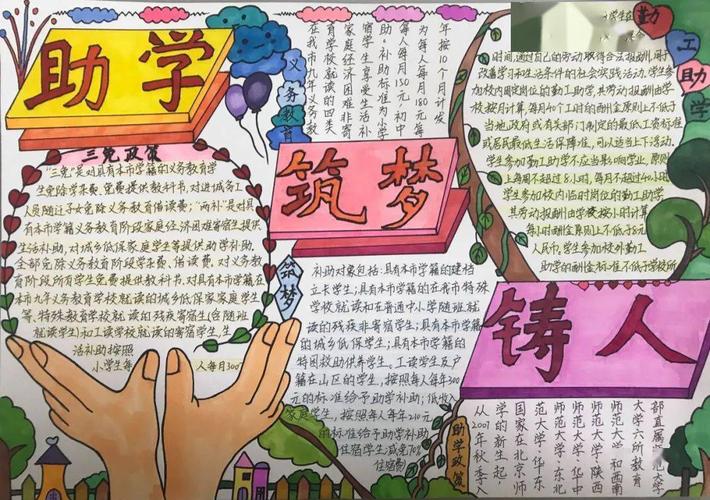 助学
三免政策
"三免"是对具有本市学籍的义务教育学
生免除学杂费、免费提供教科书,对进城务工
人员随迁子女免除义务教育借读费;"两补"是对具
有本市学籍义务教育阶段家庭经济困难寄宿生提供
生活补助,对城乡低保家庭学生等提供助学补助。
全部免除义务教育阶段学杂费、借读费,对义务教
育阶段所有学生免费提供教科书,对具有本市学籍在
本市九年义务教育学校就读的城乡低保家庭学生
等、特殊教育学校就读的残疾寄宿生(含随班
就读学生)和工读学校就读的寄宿学生,生
活补助按照
小学生每
人每月300
在我市九年义务教
育学校就读的四类
家庭经济困难非寄
宿学生享受生活补
助。补助标准为小学
每人每月150元,初中
为每人每月180元,每
年按10个月计发
义务教育
筑梦
筑梦
补助对象包括:具有本市学籍的建档
立卡学生;具有本市学籍的在我市特殊
学校就读和在普通中小学随班就
读的残疾非寄宿学生;具有本市学籍
的城乡低保学生;具有本市学籍的
特困救助供养学生。工读学生及户
籍在山区的学生,按照每人每年300
元的标准给予助学补助;低收入
家庭学生,按照每人每年210元
的标准给予助学补助
住宿学生减免70%
住宿费
勤工助学
小学生在
时间,通过自己的劳动取得合法报酬,用于
改善学习和生活条件的社会实践活动。学生参
加校内固定岗位的勤工助学,其劳动报酬由学
校按月计算,每月40个工时的酬金原则上不低于
当地政府或有关部门制定的最低工资标准
或居民最低生活保障标准,可以适当上下浮动。
学生参加勤工助学不应当影响学业,原则
上每周不超过8小时,每月不超过40小时
学生参加校内临时岗位的勤工助学
其劳动报酬由学校按小时计算
每小时酬金原则上不低于8元
人民币,学生参加校外勤工
助学的酬金标准不低于学校所
铸人
助学政策
从2007年秋季入
学的新生起,
国家在北京师
范大学、华东
师范大学、东北
师范大学、华中
师范大学、陕西
师范大学和西南
大学六所教育
部直属师范大学